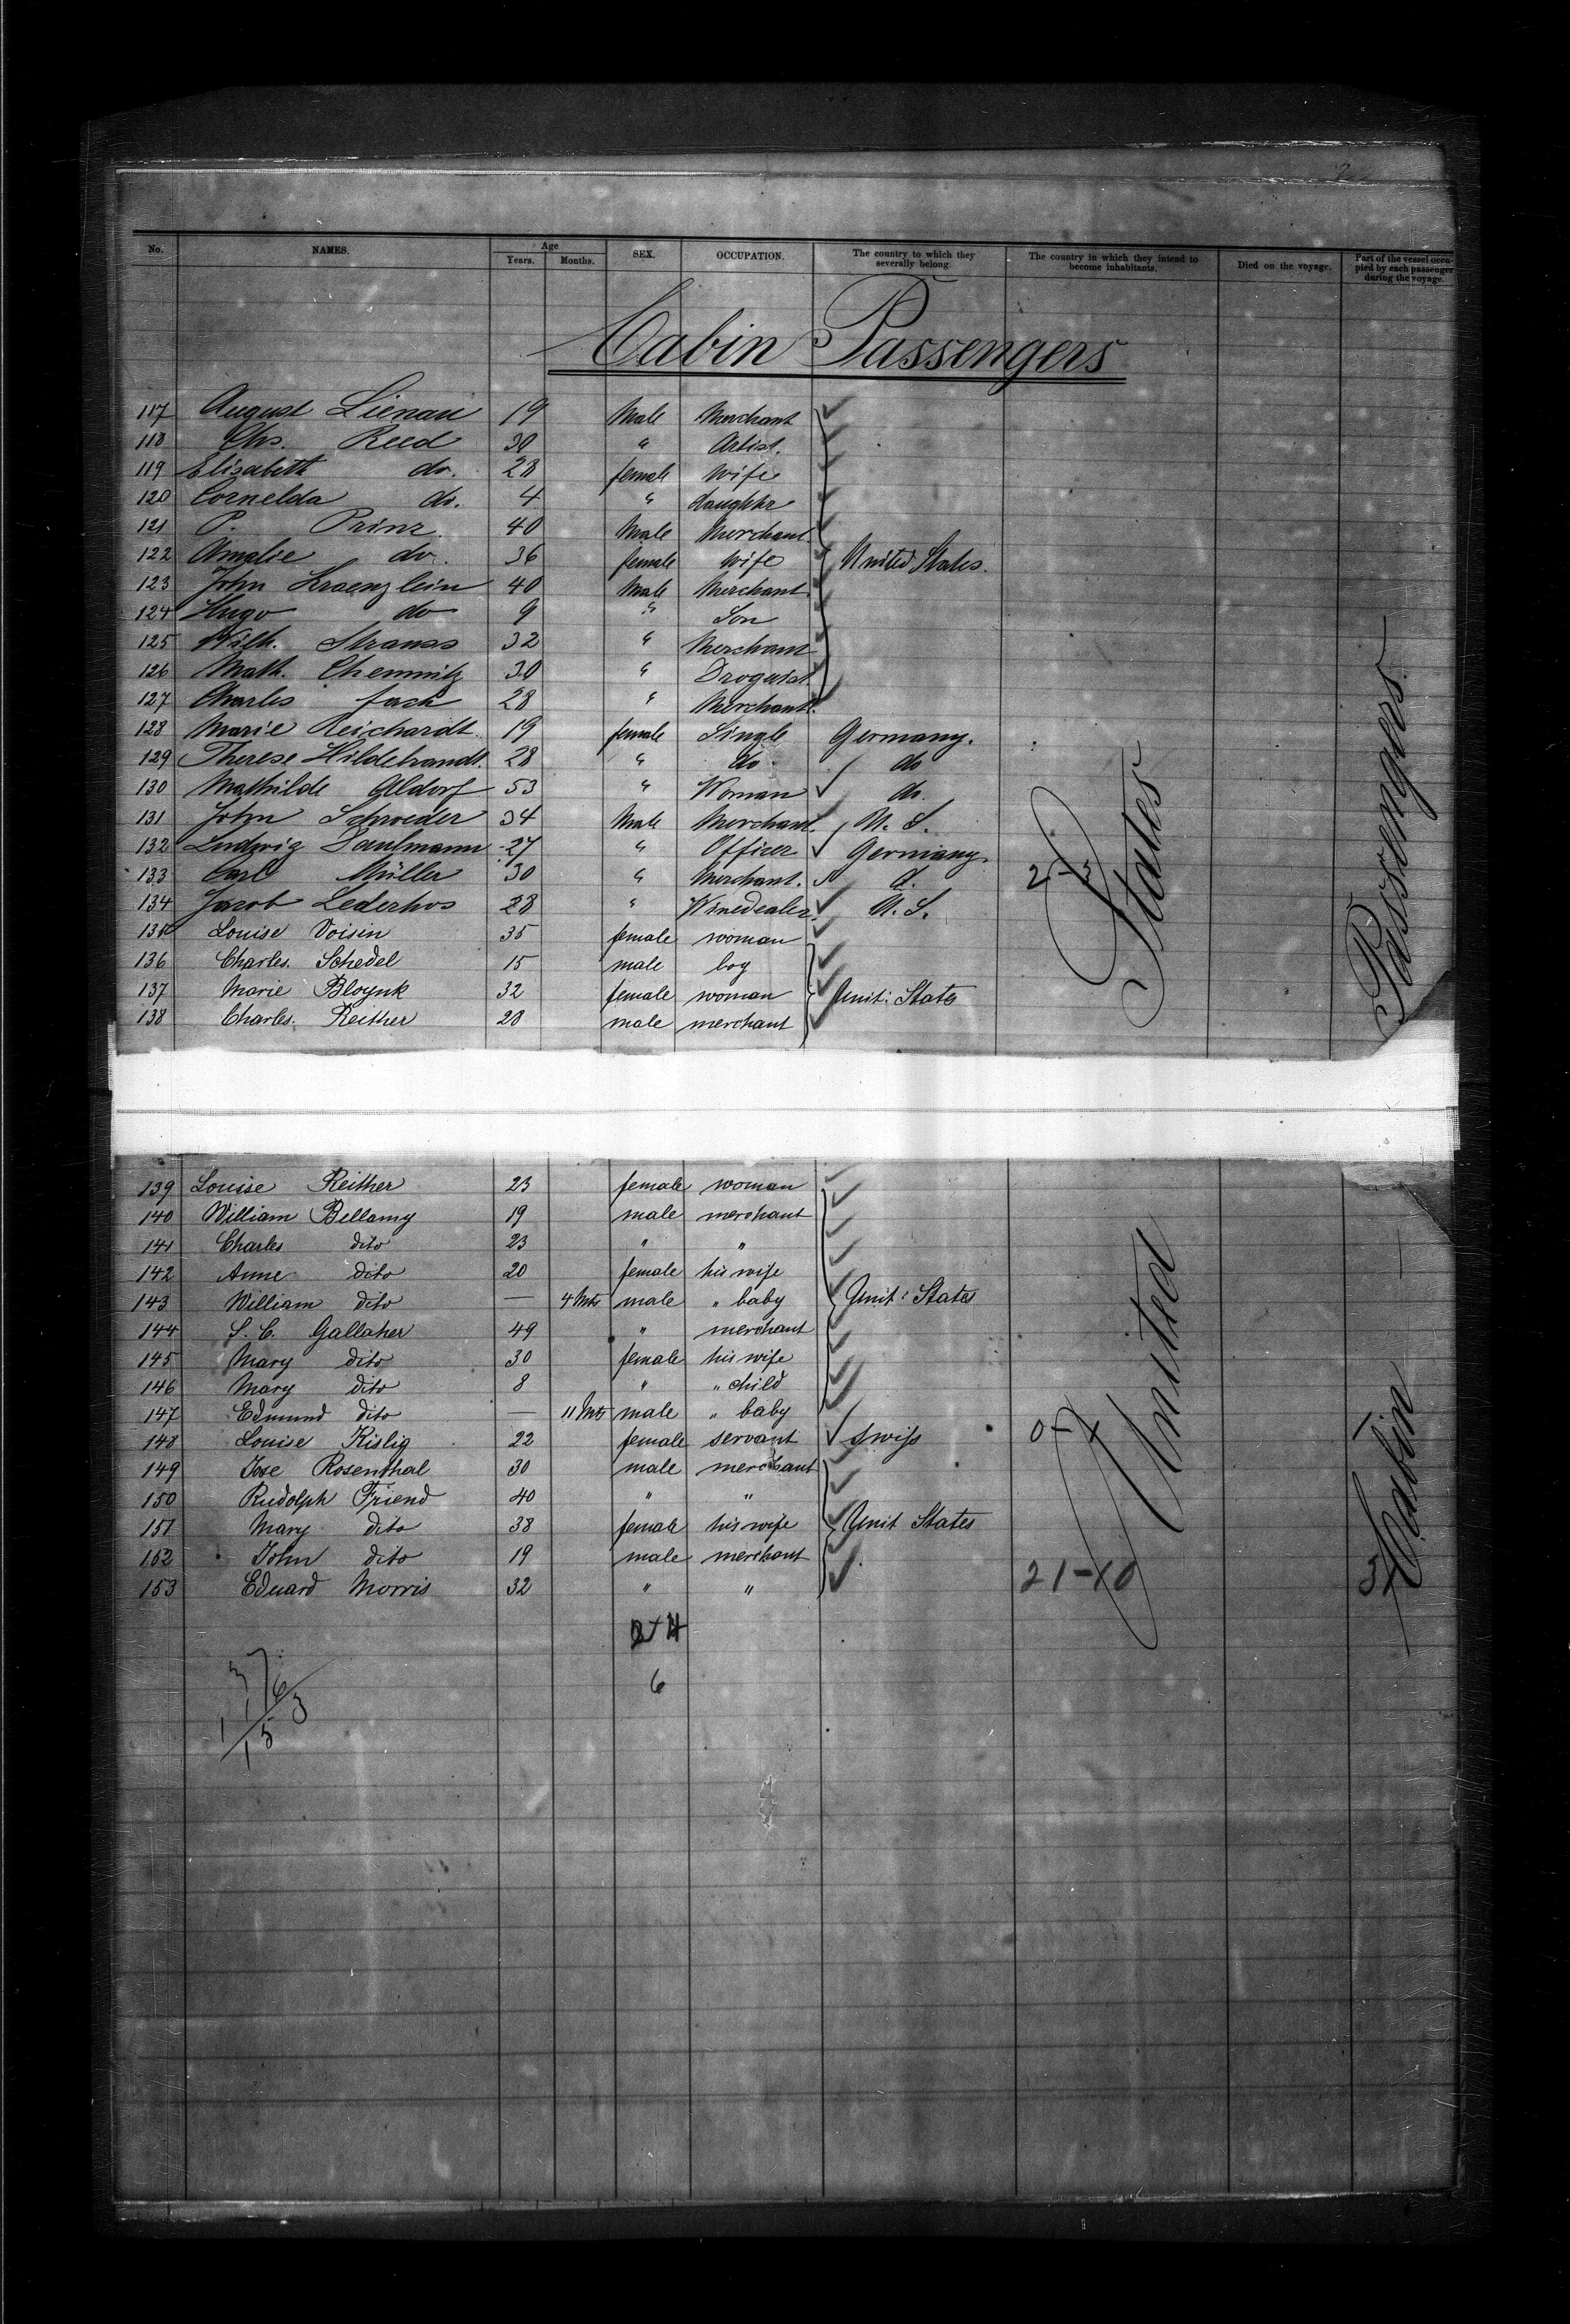 No. NAMES. Age Years. Months. SEX. OCCUPATION. The country to which they severally belong. The country in which they intend to become inhabitants. Died on the voyage. Part of the vessel occupied by each passenger during the voyage.
Cabin Passengers
117 August Lienau 19 Male Merchant
118 Chs. Reed 30 " Artist.
119 Elisabeth do. 28 female wife
120 Cornelda do. 4 " daughter
121 P. Prinz 40 Male Merchant
122 Amalie do. 36 female wife United States.
123 John Kraenzlein 40 Male Merchant.
124 Hugo do 9 " Son
125 Wilh. Strauss 32 " Merchant
126 Math. Chemnitz 30 " Droguist.
127 Charles 28 " Merchant.
128 Marie Reichardt 19 female Single Germany.
129 Therese Hildebrandt. 28 " do do
130 Mathilde Aldorf 53 " Woman do.
131 John Schroeder 34 Male Merchant. U. S.
132 Ludwig Paulmann 27 " Officer Germany.
133 Carl Müller 30 " Merchant. d.
134 Jacob Lederhos 28 " Winedealer. U. S.
135 Louise Voisin 35 female woman
136 Charles. Schedel 15 male boy
137 Marie Bloynk 32 female woman Unit: States
138 Charles. Reither 28 male merchant
139 Louise Reither 23 female woman
140 William Bellamy 19 male merchant
141 Charles dito 23 " "
142 Anne dito 20 female his wife
143 William dito — 4 Mts male " baby Unit: States
144 S. C. Gallaher 49 " merchant
145 Mary dito 30 female his wife
146 Mary dito 8 " " child
147 Edmund dito — 11 Mts male " baby
148 Louise Kislig 22 female servant swiss
149 Jose Rosenthal 30 male merchant
150 Rudolph Friend 40 " "
151 Mary dito 38 female his wife Unit States
152 John dito 19 male merchant
153 Eduard Morris 32 " " 21-10
United States
Cabin Passengers
6
37
116
153